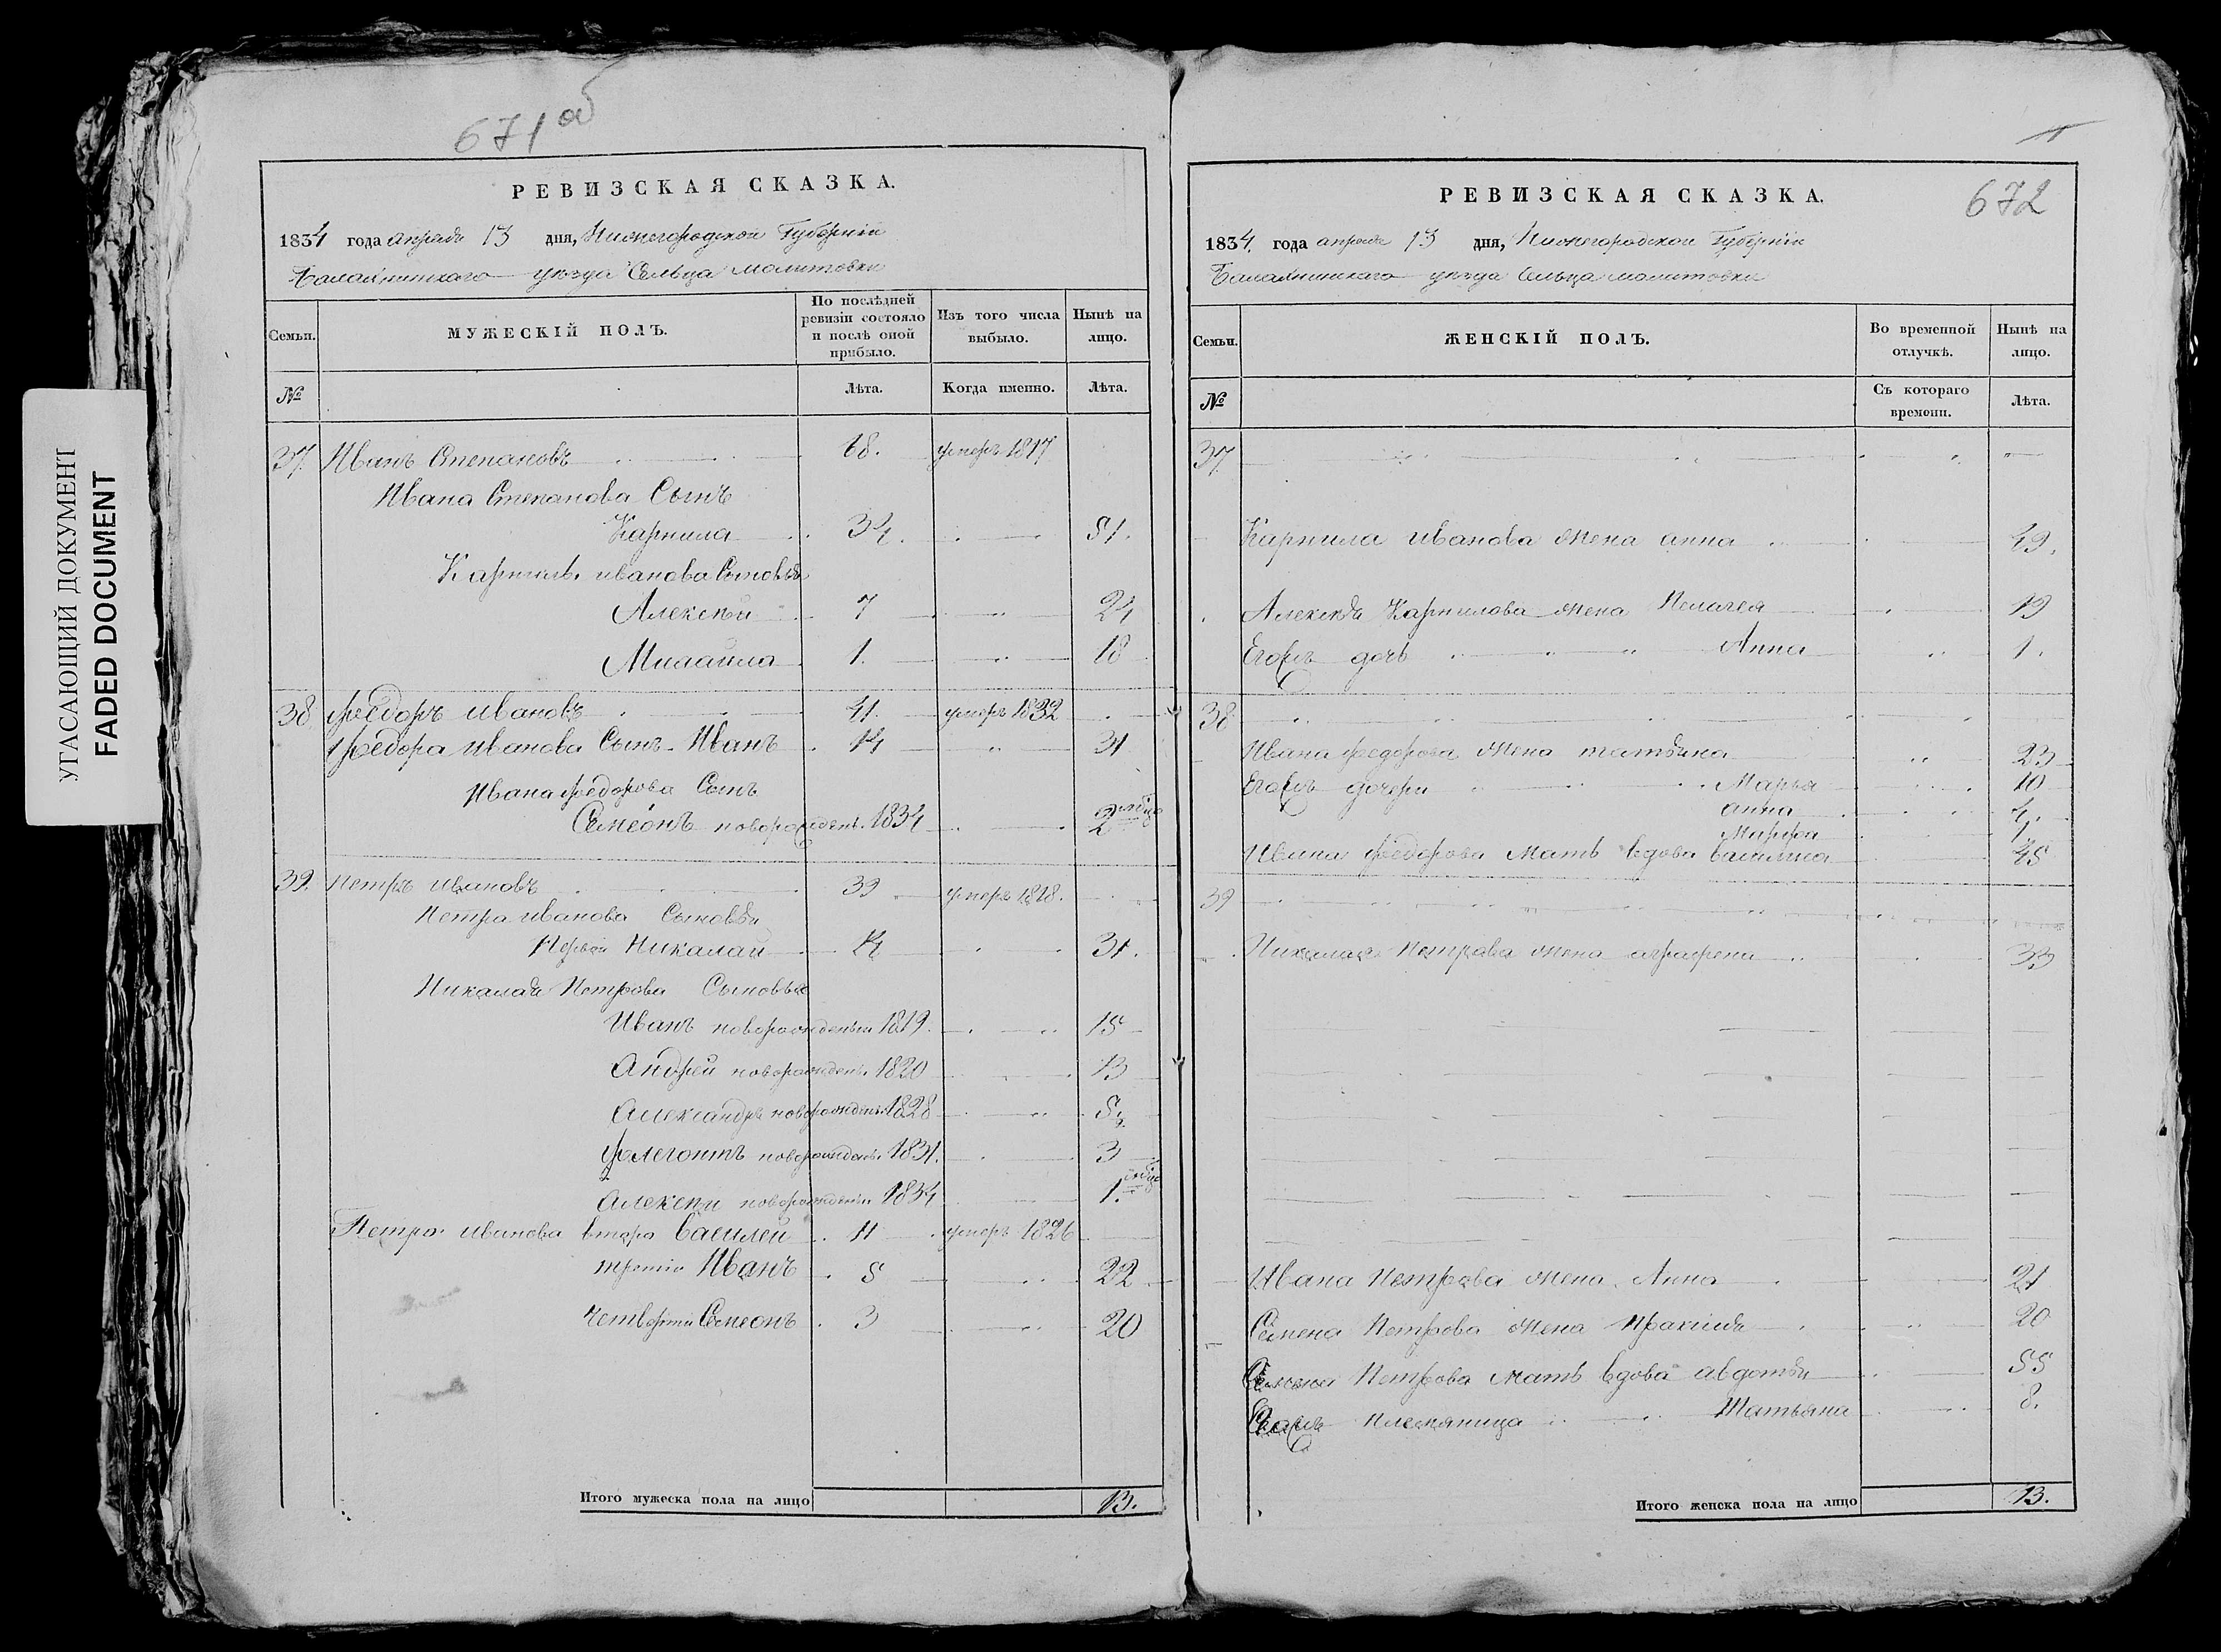 УГАСАЮЩИЙ ДОКУМЕНТ
FADED DOCUMENT
671 об
РЕВИЗСКАЯ СКАЗКА.
1834 года апреля 13 дня, Нижегородской Губернии
Балахнинскаго уезда Сельца молитовки
Семьи. МУЖЕСКІЙ ПОЛЪ. По послѣдней ревизіи состояло и послѣ оной прибыло. Изъ того числа выбыло. Нынѣ на лицо.
№ Лѣта. Когда именно. Лѣта.
37. Иванъ Степановъ 68. умеръ 1817
Ивана Степанова Сынъ
Карнила 34. 51.
Карнилы иванова Сыновья
Алексѣй 7 24
Михайла 1. 18
38 Федоръ ивановъ 41. умеръ 1832
Федора иванова Сынъ Иванъ 14 31
Ивана федорова Сынъ
Семеонъ новорожден. 1834 2 мѣсца
39. Петръ ивановъ 39 умеръ 1818.
Петра иванова Сыновья
Первой Никалай 14 31.
Никалая Петрова Сыновья
Иванъ новорожденъ 1819. 15
Андрей новорожден. 1820 13
Александръ новорожден. 1828 5
Фалегонтъ новорожден. 1831. 3
Алексѣй новорожден. 1834 1. мѣсца
Петра иванова втаро Василей 11 умеръ 1826
третіи Иванъ 5 22
четвертіи Семеонъ 3 20
Итого мужеска пола на лицо 13.
672
РЕВИЗСКАЯ СКАЗКА.
1834. года апреля 13 дня, Нижегородскои Губерніи
Балахнинскаго уезда Сельца молитовки
Семьи. ЖЕНСКІЙ ПОЛЪ. Во временной отлучкѣ. Нынѣ на лицо.
№ Съ котораго времени. Лѣта.
37
Карнила иванова жена анна 49.
Алексѣя Карнилова жена Пелагея 19
Егоже дочь Анна 1.
38
Ивана федорова жена татьяна 23
Егожъ дочери Марья 10
анна 4.
Марфа 1.
Ивана федорова мать вдова василиса 45
39
Никалая Петрова жена аграфена 33
Ивана Петрова жена Анна 21
Семена Петрова жена 20
Семена Петрова мать вдова авдотья 55
Егожъ племяница Татьяна 8.
Итого женска пола на лицо 13.